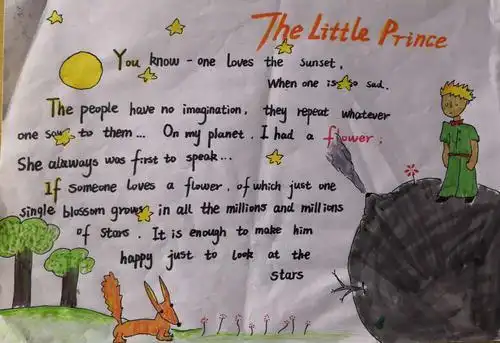 The Little Prince
You know - one loves the sunset,
When one is so sad.
The people have no imagination, they repeat whatever
one say to them... On my planet, I had a flower;
She alaways was first to speak...
If someone loves a flower, of which just one
single blossom grows in all the millions and millions
of stars. It is enough to make him
happy just to look at the
stars